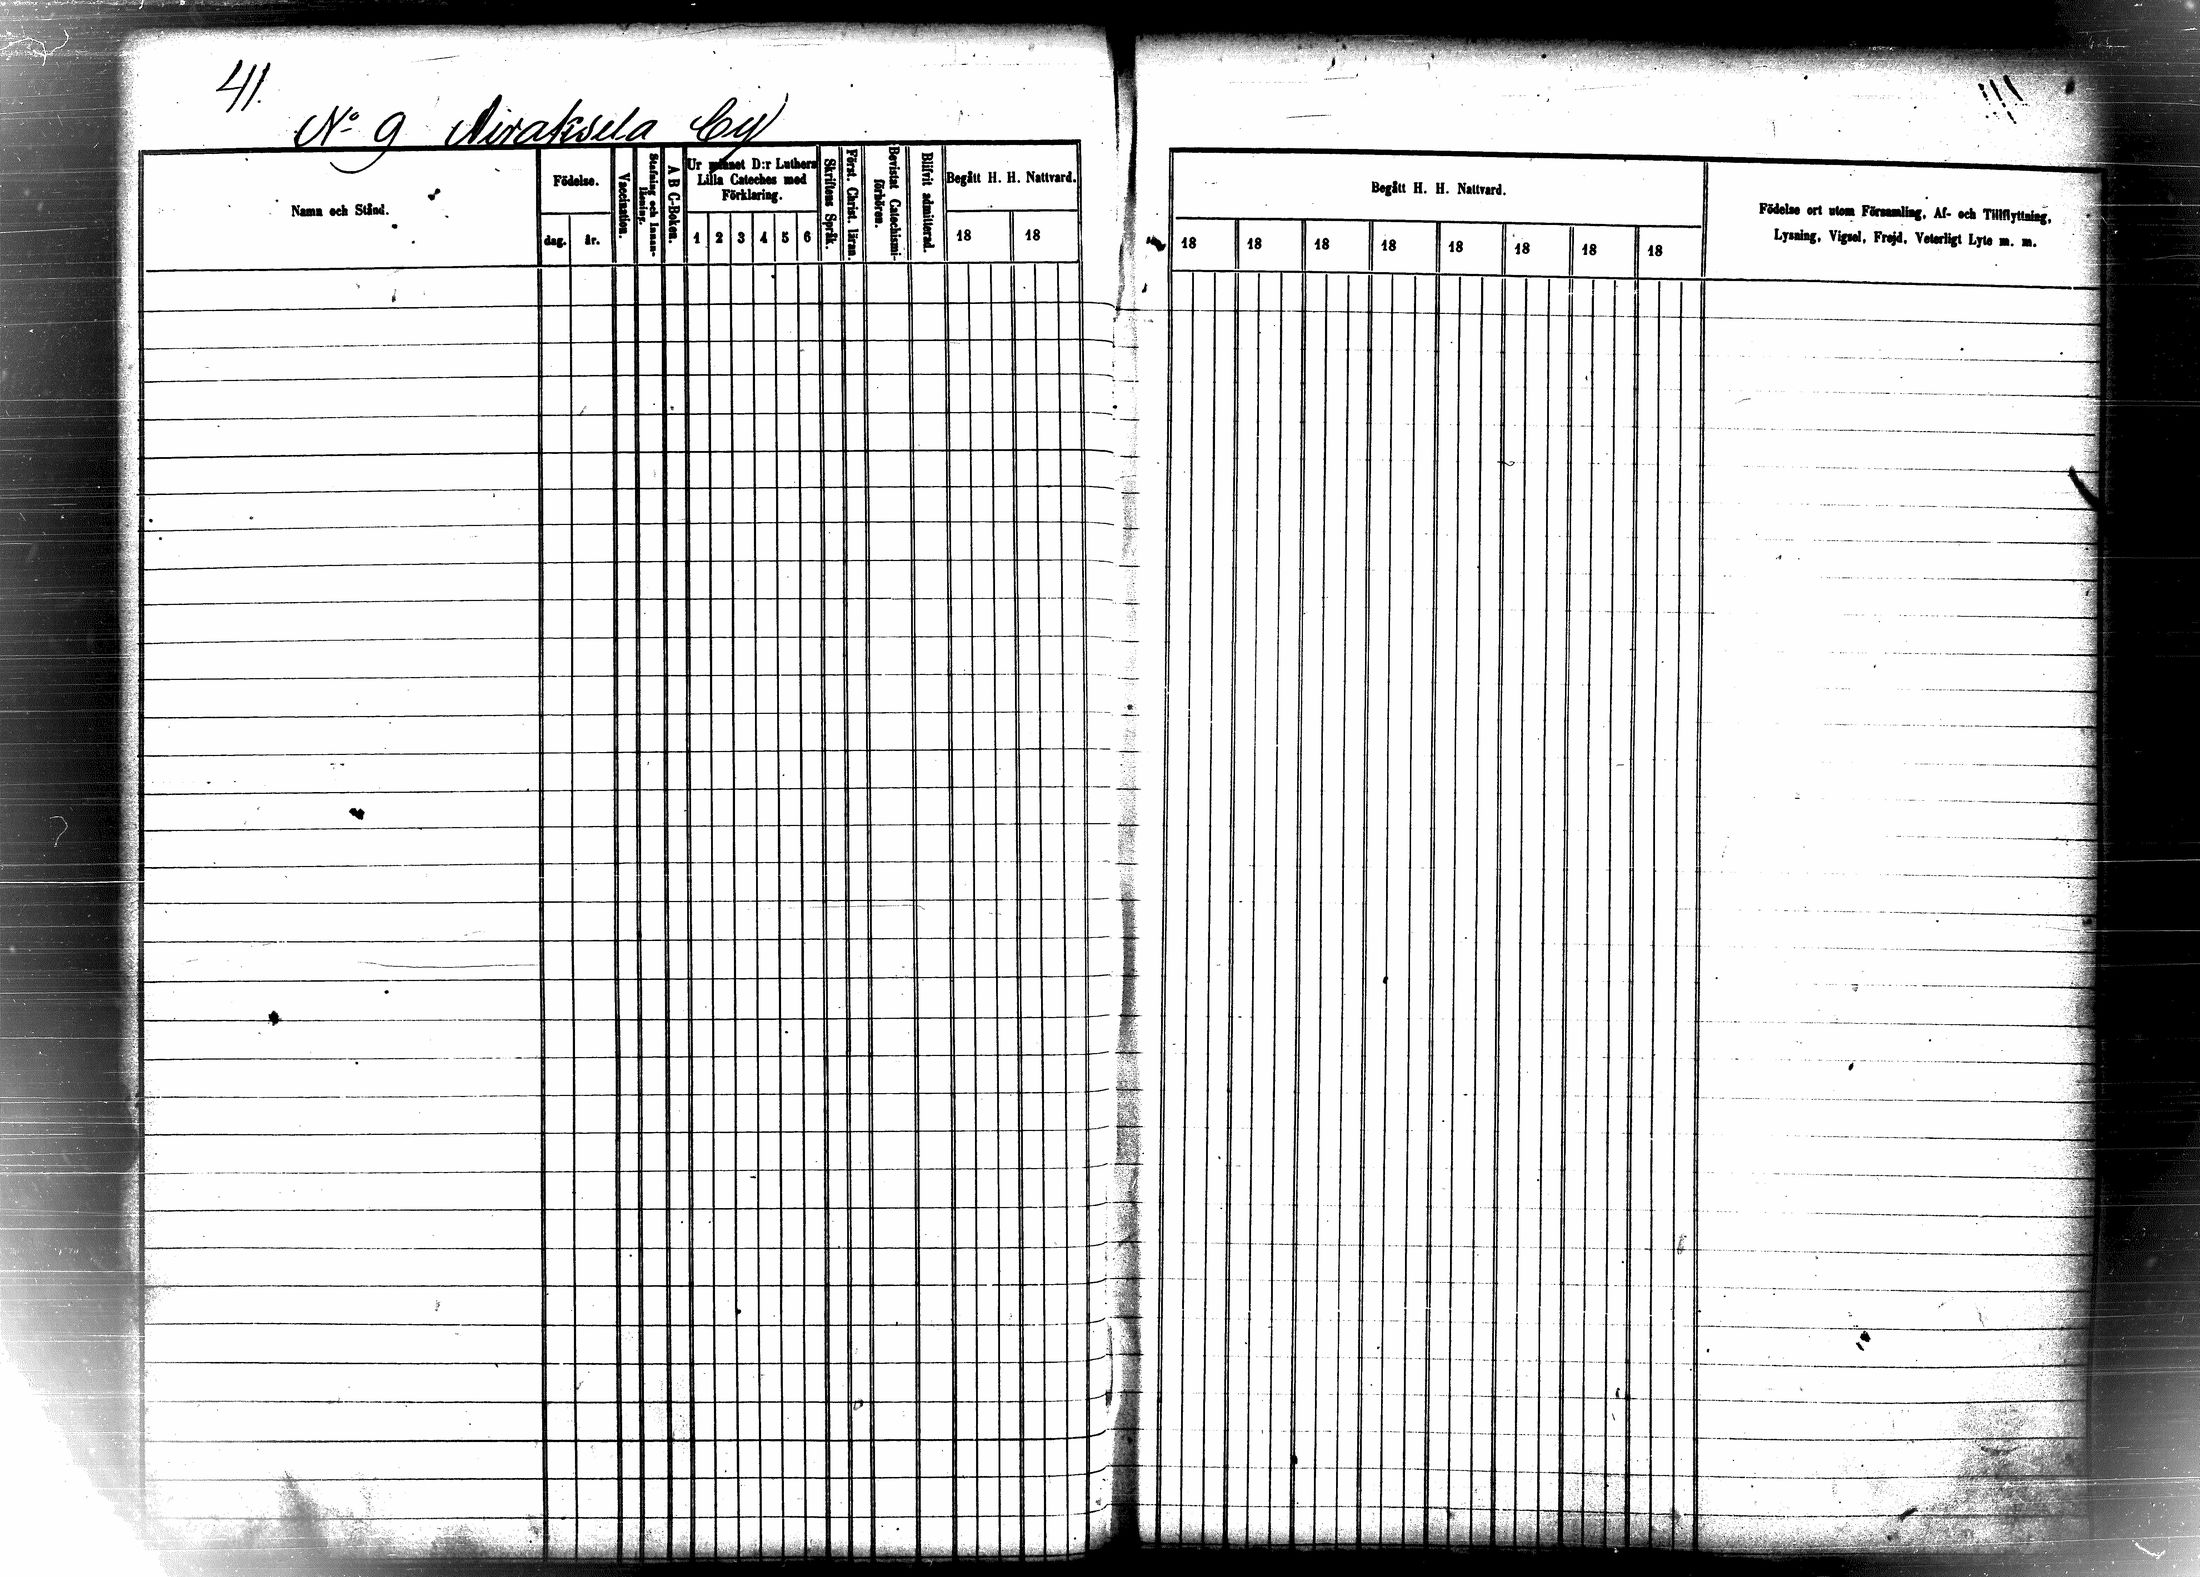 41.
No 9 Airaksela By
Namn och Stånd.
Födelse.
dag. år.
Vaccination.
Stafning och Innan-
läsning.
A B C-Boken.
Ur minnet D:r Luthers
Lilla Cateches med
Förklaring.
1 2 3 4 5 6
Skriftens Språk.
Först. Christ. läran.
Bevistat Catechismi-
förhören.
Blifvit admitterad.
Begått H. H. Nattvard.
18 18
Begått H. H. Nattvard.
18 18 18 18 18 18 18 18
Födelse ort utom Församling, Af- och Tillflyttning,
Lysning, Vigsel, Frejd, Veterligt Lyte m. m.